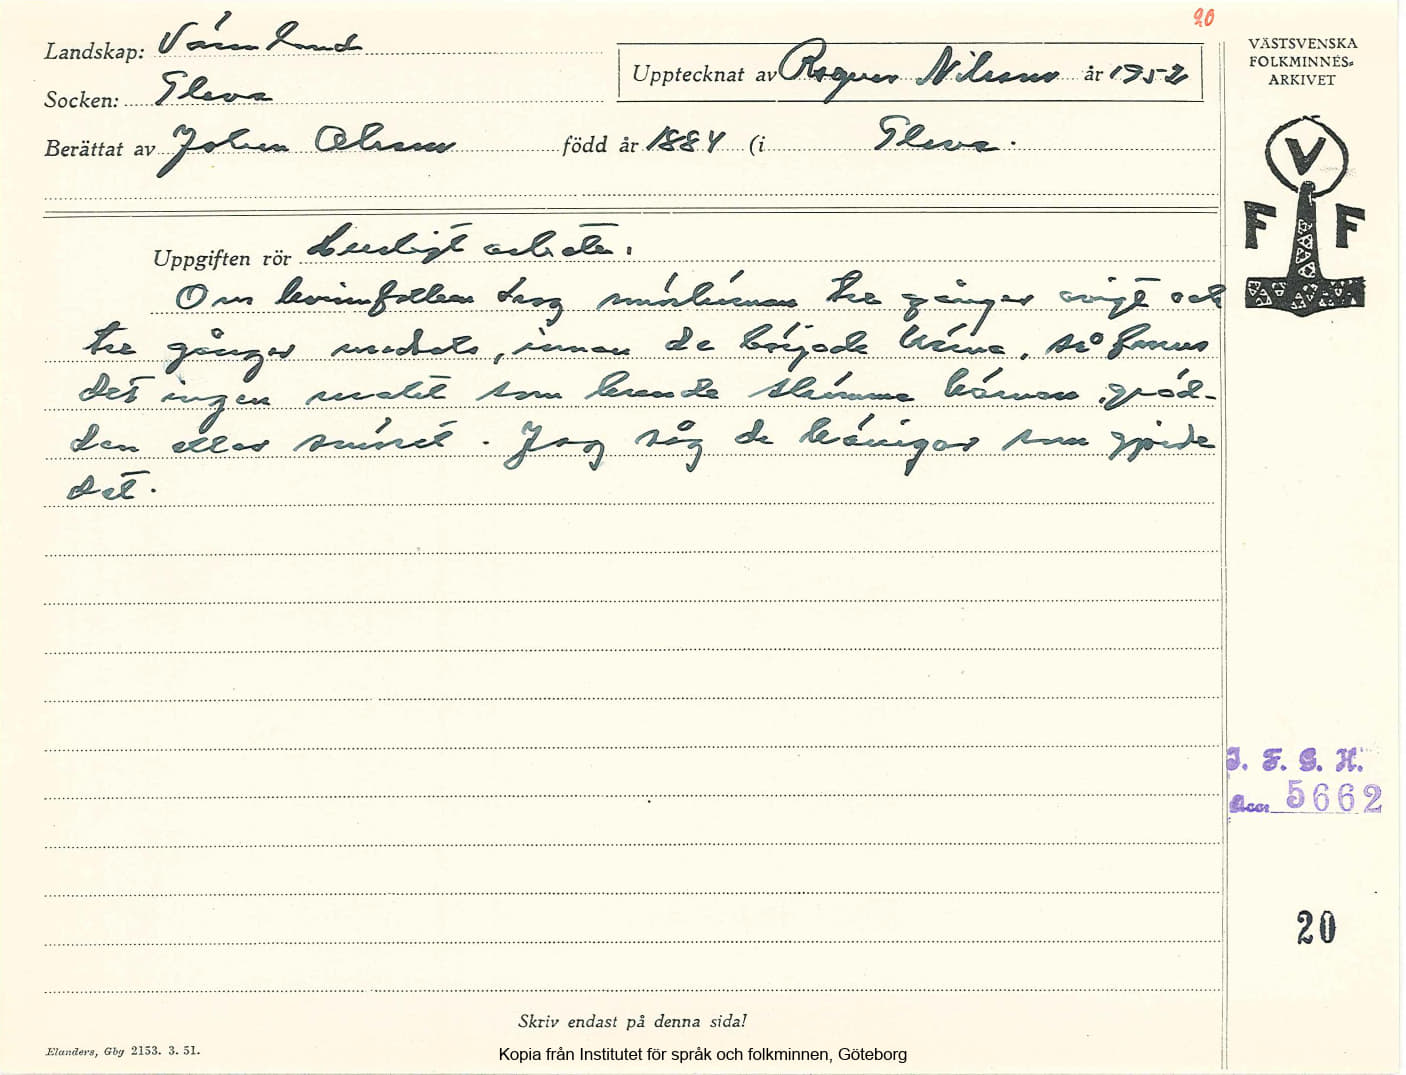 20
Landskap: Värmland
Socken: Gleva
Upptecknat av Ragnar Nilsson år 1952
Berättat av Johan Olsson född år 1884 (i Gleva.
VÄSTSVENSKA
FOLKMINNES-
ARKIVET
V
F F
Uppgiften rör husligt arbete.
Om kvinnfolken drog smörkärnan tre gånger avigt och
tre gånger medsols, innan de började kärna, så fanns
det ingen makt som kunde skämma kärnan, gräd-
den eller smöret. Jag såg de käringar som gjorde
det.
I. F. G. H.
Acc. 5662
20
Skriv endast på denna sida!
Elanders, Gbg 2153. 3. 51.
Kopia från Institutet för språk och folkminnen, Göteborg